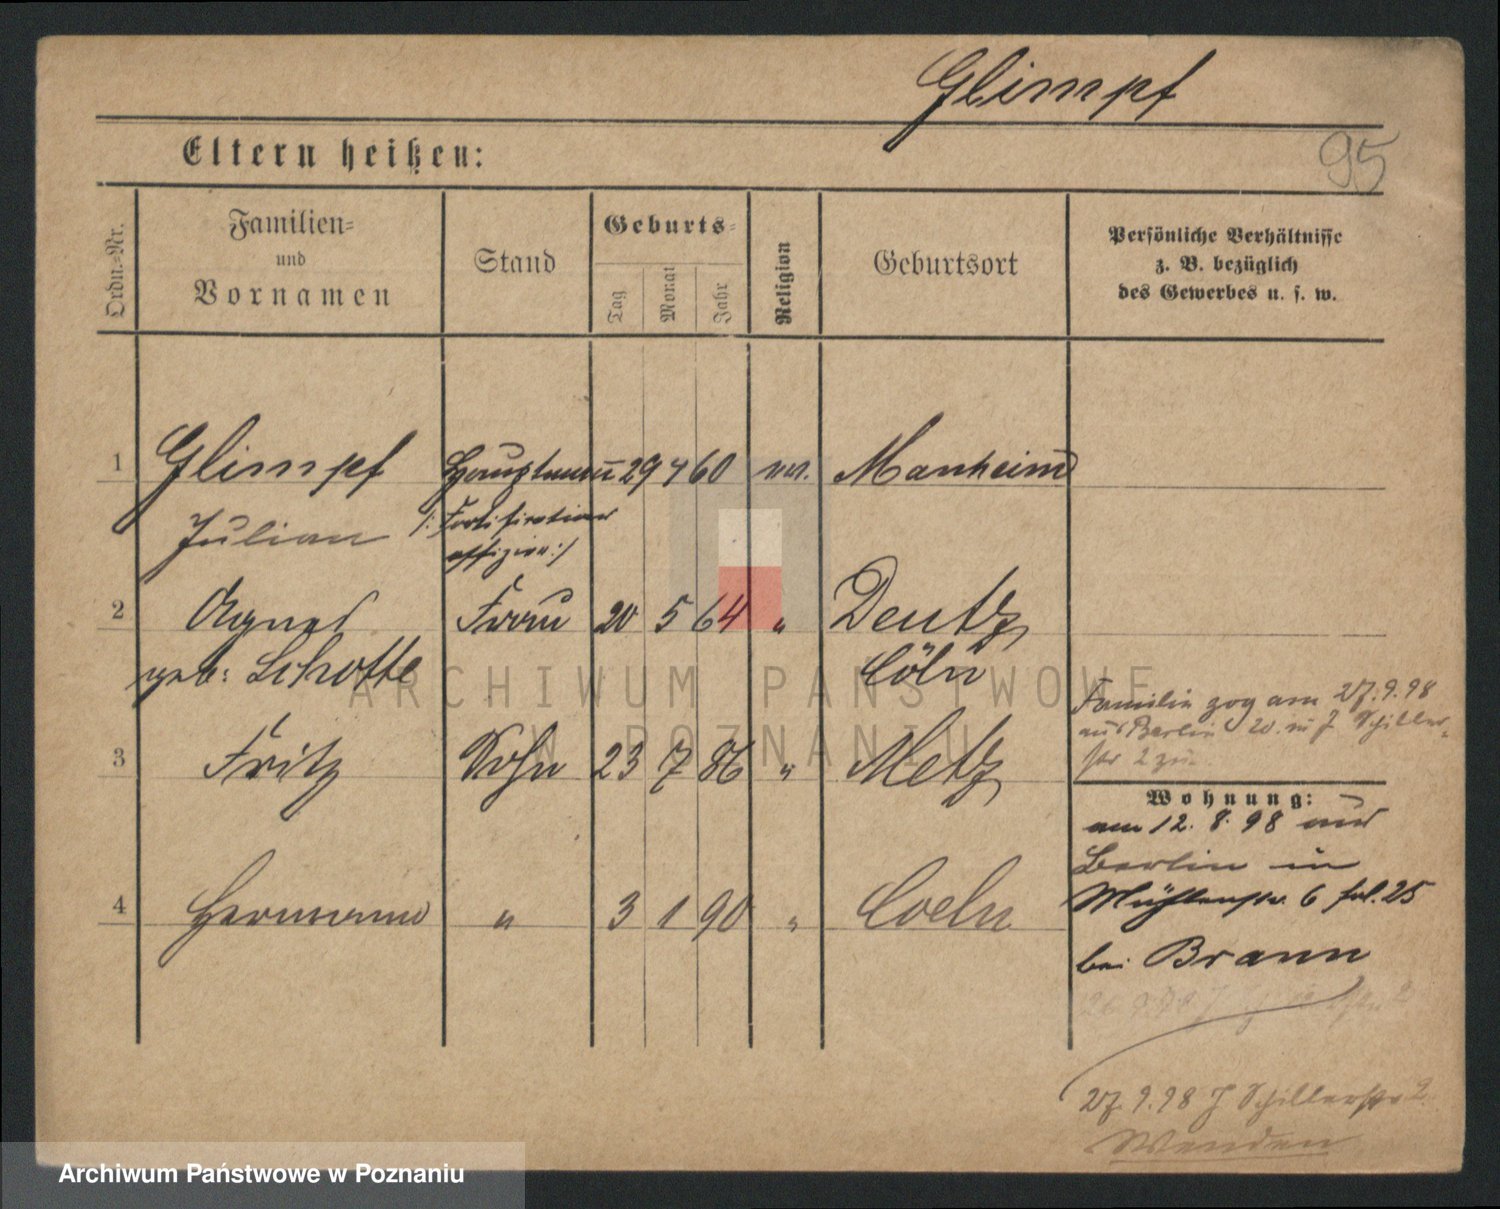 Glimpf
95
Eltern heißen:
Ordn.-Nr.
Familien-
und
Vornamen
Stand
Geburts-
Tag
Monat
Jahr
Religion
Geburtsort
Persönliche Verhältnisse
z. B. bezüglich
des Gewerbes u. s. w.
1 Glimpf Hauptmann 29 4 60 Manheim
Julian /: Fortifikations
offizier :/
2 Agnes Frau 20 5 64 " Deutz
geb: Schotte Cöln
3 Fritz Sohn 23 7 86 " Metz
4 Hermann " 3 1 90 " Coeln
Familie zog am 27.9.98
aus Berlin Schiller
str 2 zu
Wohnung:
am 12. 8. 98 aus
Berlin in
Mühlenstr. 6
bei Braun
27 9.98 J Schillerstr 2
Wenden
ARCHIWUM PAŃSTWOWE
W POZNANIU
Archiwum Państwowe w Poznaniu